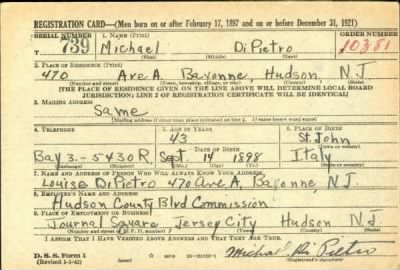 REGISTRATION CARD—(Men born on or after February 17, 1897 and on or before December 31, 1921)
SERIAL NUMBER 1. NAME (Print) ORDER NUMBER
739 Michael DiPietro 10381
(First) (Middle) (Last)
2. PLACE OF RESIDENCE (Print)
470 Ave A. Bayonne, Hudson, N.J
(Number and street) (Town, township, village, or city) (County) (State)
[THE PLACE OF RESIDENCE GIVEN ON THE LINE ABOVE WILL DETERMINE LOCAL BOARD
JURISDICTION; LINE 2 OF REGISTRATION CERTIFICATE WILL BE IDENTICAL]
3. MAILING ADDRESS
Same
[Mailing address if other than place indicated on line 2. If same insert word same]
4. TELEPHONE 5. AGE IN YEARS 6. PLACE OF BIRTH
43 St. John
DATE OF BIRTH (Town or county)
Bay 3--5430R. Sept 14 1898 Italy
(Exchange) (Number) (Mo.) (Day) (Yr.) (State or country)
7. NAME AND ADDRESS OF PERSON WHO WILL ALWAYS KNOW YOUR ADDRESS
Louise DiPietro 470 Ave A, Bayonne, N.J.
8. EMPLOYER'S NAME AND ADDRESS
Hudson County Blvd Commission
9. PLACE OF EMPLOYMENT OR BUSINESS
Journal Square Jersey City Hudson N.J.
(Number and street or R. F. D. number) (Town) (County) (State)
I AFFIRM THAT I HAVE VERIFIED ABOVE ANSWERS AND THAT THEY ARE TRUE.
D. S. S. Form 1
(Revised 1-1-42) (over) Michael Di Pietro
(Registrant's signature)